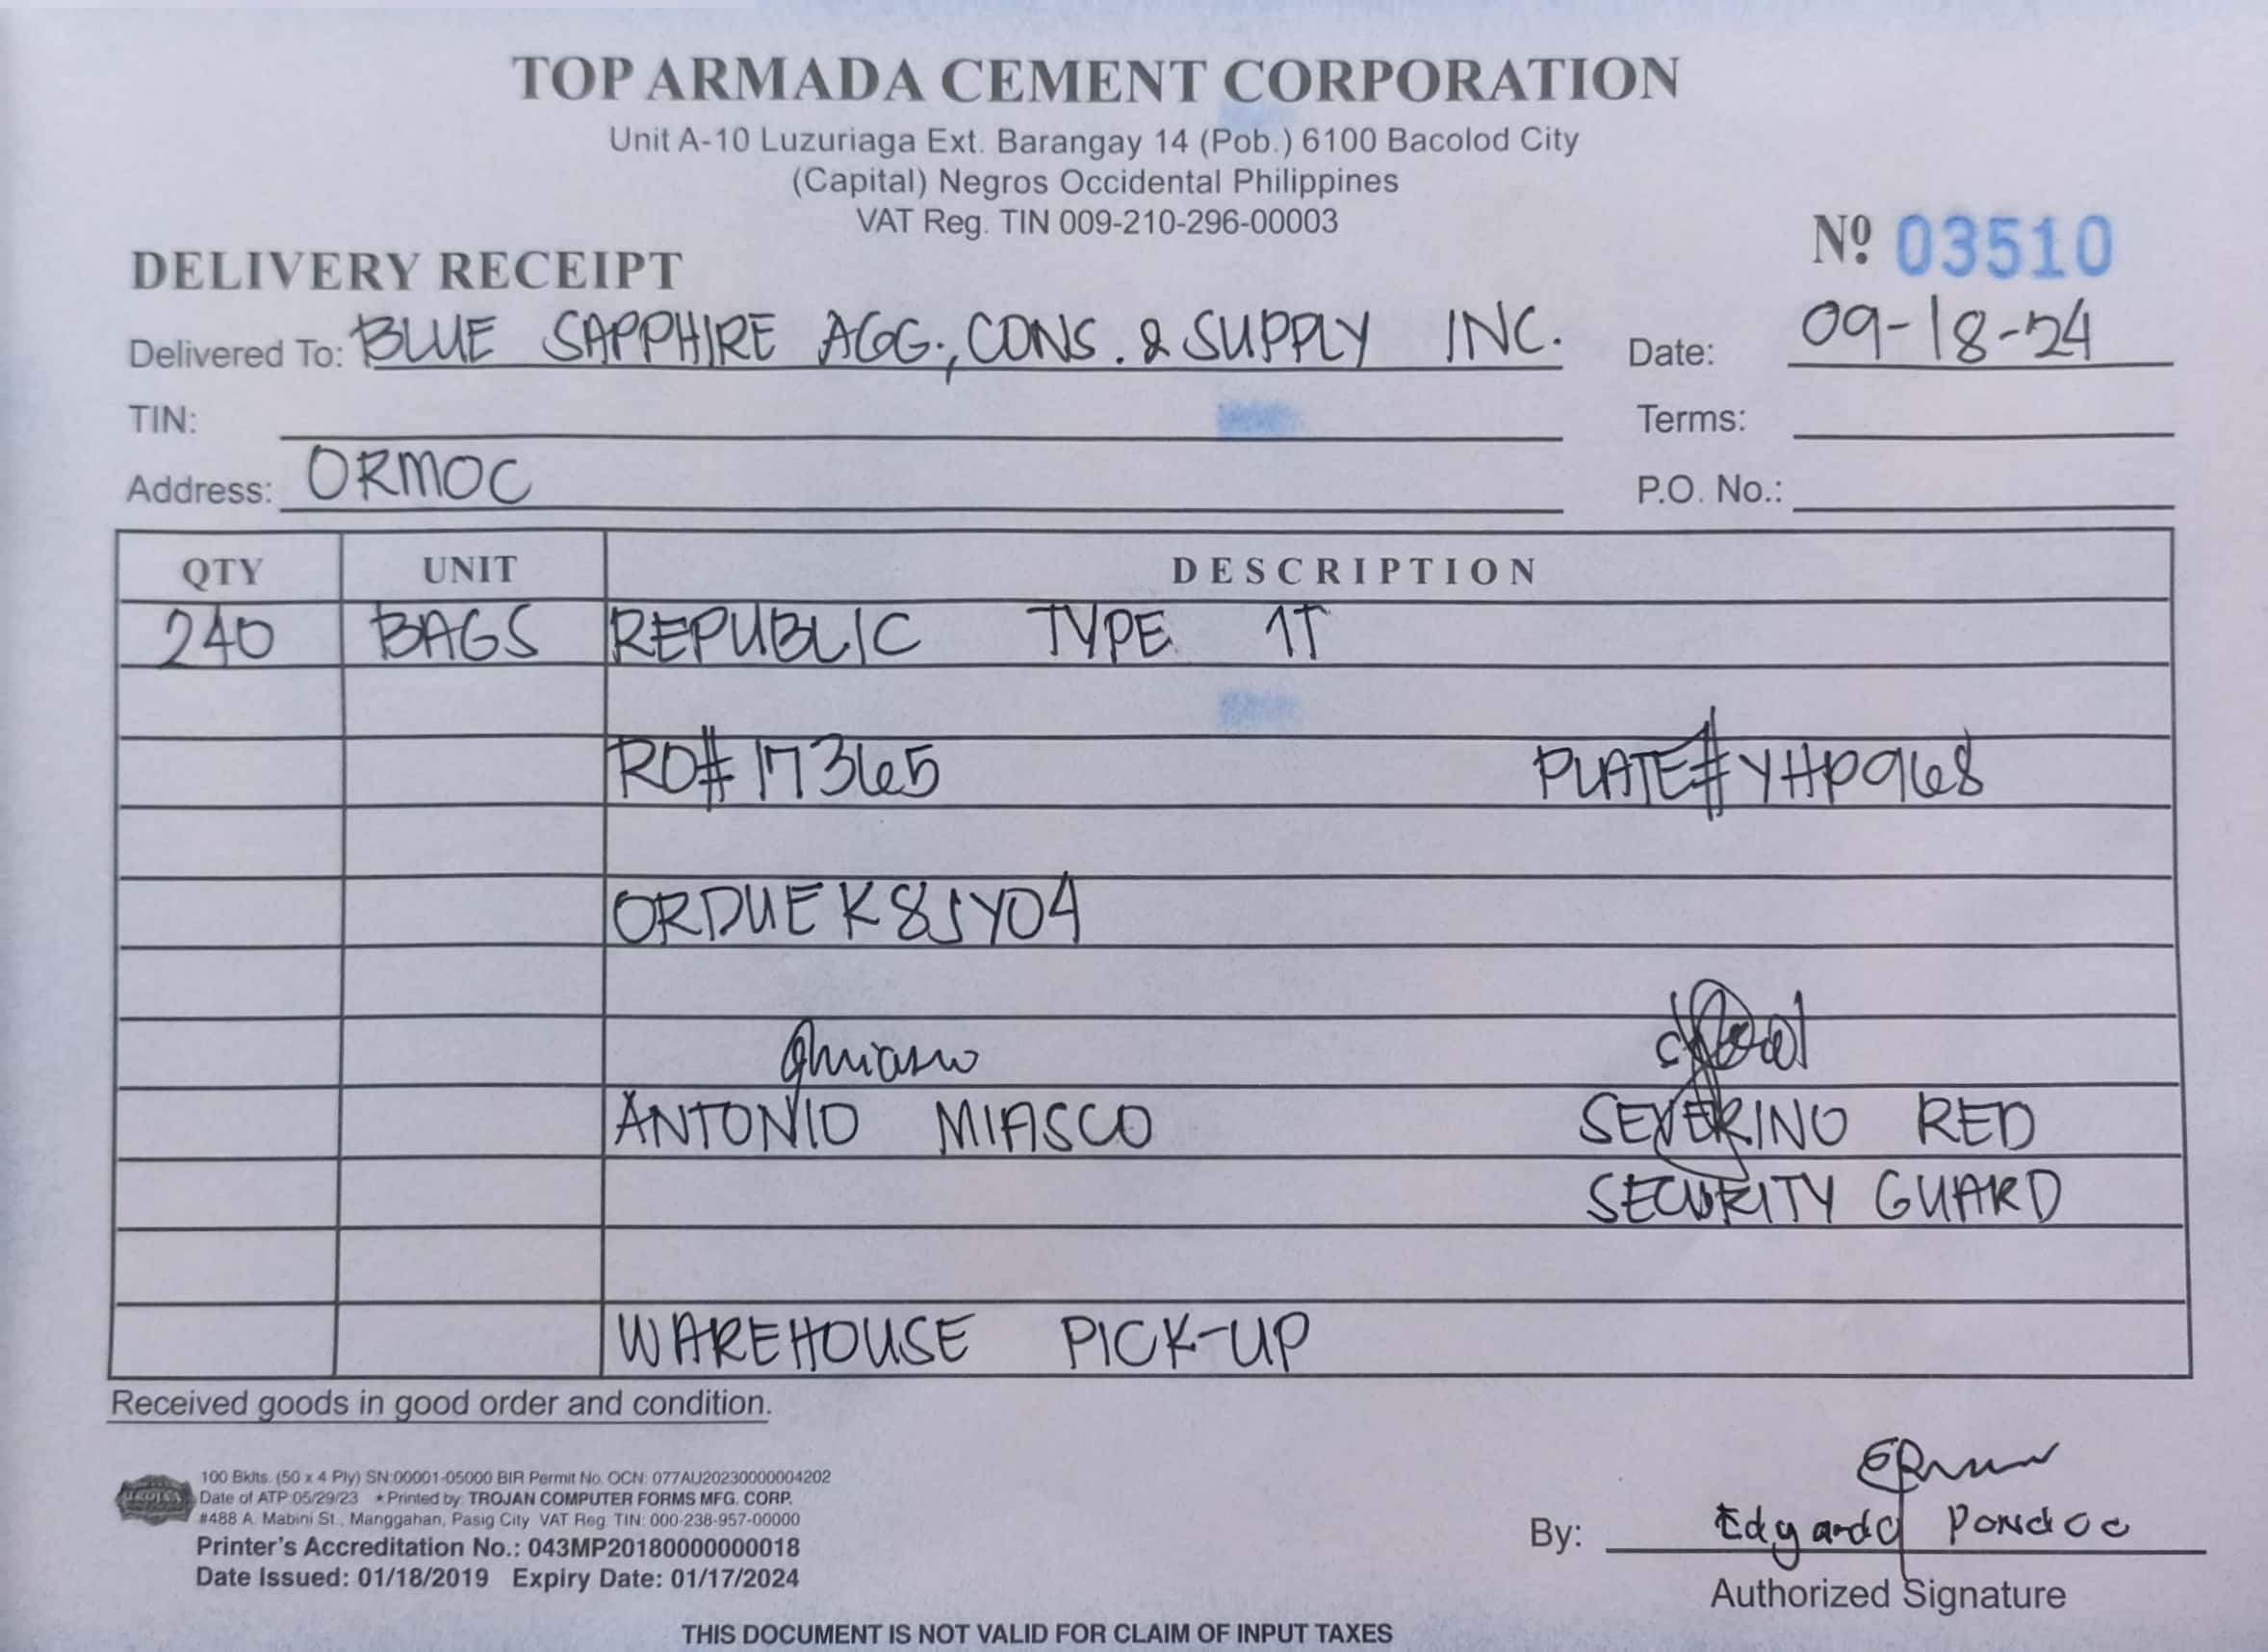 TOP ARMADA CEMENT CORPORATION
Unit A-10 Luzuriaga Ext. Barangay 14 (Pob.) 6100 Bacolod City
(Capital) Negros Occidental Philippines
VAT Reg. TIN 009-210-296-00003
Nº 03510
DELIVERY RECEIPT
Delivered To: BLUE SAPPHIRE AGG., CONS. & SUPPLY INC. Date: 09-18-24
TIN: Terms:
Address: ORMOC P.O. No.:
QTY UNIT DESCRIPTION
240 BAGS REPUBLIC TYPE 1T
RO# 17365 PLATE# YHP968
ORDUEK8JY04
ANTONIO MIASCO SEVERINO RED
SECURITY GUARD
WAREHOUSE PICK-UP
Received goods in good order and condition.
100 Bklts. (50 x 4 Ply) SN:00001-05000 BIR Permit No. OCN: 077AU20230000004202
Date of ATP:05/29/23 ★Printed by: TROJAN COMPUTER FORMS MFG. CORP.
#488 A. Mabini St., Manggahan, Pasig City VAT Reg. TIN: 000-238-957-00000
Printer's Accreditation No.: 043MP20180000000018
Date Issued: 01/18/2019 Expiry Date: 01/17/2024
By: Edgardo Pondoc
Authorized Signature
THIS DOCUMENT IS NOT VALID FOR CLAIM OF INPUT TAXES